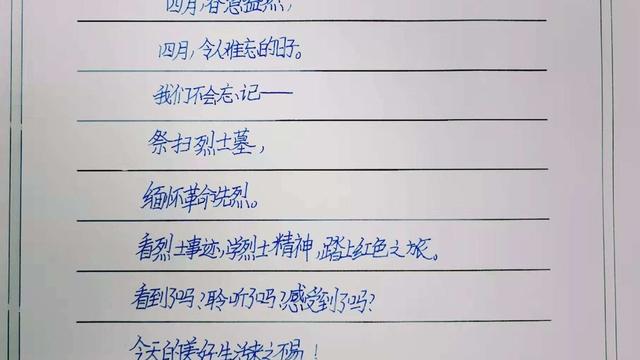 四月，春意盎然，
四月，令人难忘的日子。
我们不会忘记——
祭扫烈士墓，
缅怀革命先烈。
看烈士事迹，学烈士精神，踏上红色之旅。
看到了吗？聆听了吗？感受到了吗？
今天的美好生活来之不易！